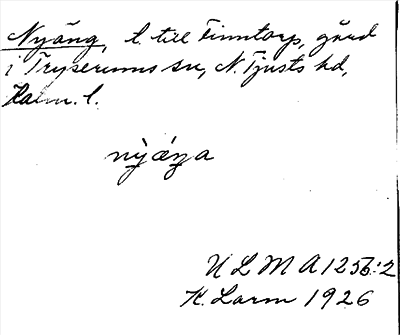 Nyäng, l. till Finntorp, gård
i Tryserums sn, N. Tjusts hd,
Kalm. l.
nỳǽŋa
ULMA 1256:2
K. Larm 1926